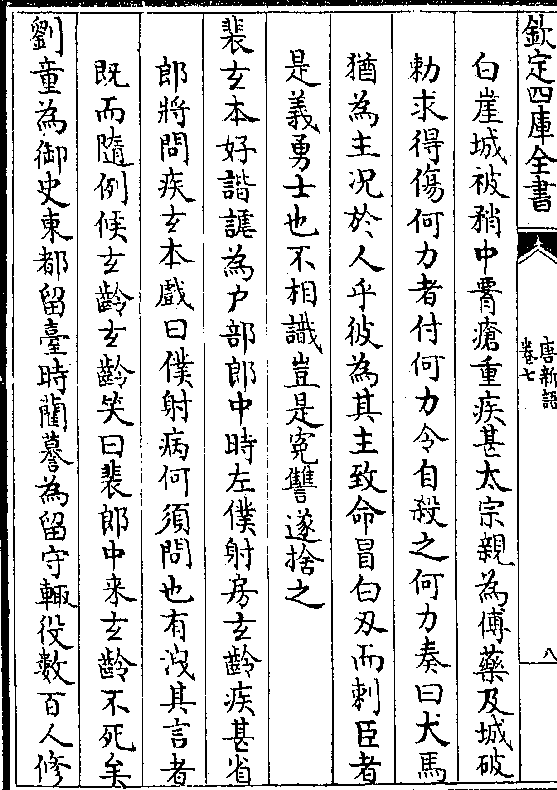 欽定四庫全書
唐新語
卷七
八
白崖城被矟中腰瘡重疾甚太宗親為傅藥及城破
勅求得傷何力者付何力令自殺之何力奏曰犬馬
猶為主况於人乎彼為其主致命冒白刃而刺臣者
是義勇士也不相識豈是寃讐遂捨之
裴𤣥本好諧謔為户部郎中時左僕射房𤣥齡疾甚省
郎將問疾𤣥本戲曰僕射病何須問也有洩其言者
既而隨例候𤣥齡𤣥齡笑曰裴郎中来𤣥齡不死矣
劉童為御史東都留臺時蘭謩為留守輙役數百人修